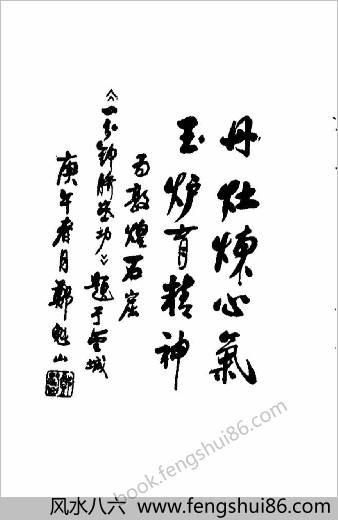 丹灶煉心氣
玉炉育精神
为敦煌石窟
《一分钟脐密功》题于金城
庚午春月鄭魁山
book.fengshui86.com
风水八六 www.fengshui86.com